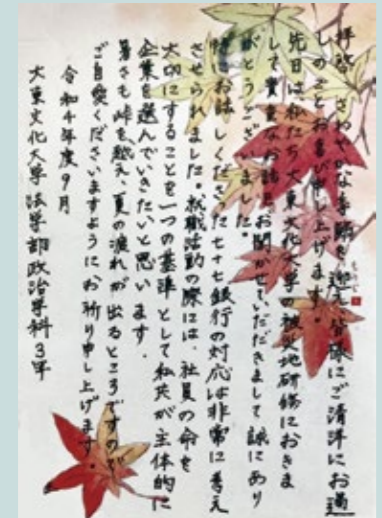 拝啓 さわやかな季節を迎え、皆様にご清祥にお過
しのこととお喜び申し上げます。
先日は、私たち大東文化大学の被災地研修におきま
して貴重なお話を、お聞かせいただきまして誠にあり
がとうございました。
特にお話しくださった七十七銀行の対応は非常に考え
させられました。就職活動の際には、社員の命を
大切にすることを一つの基準として私共が主体的に
企業を選んでいきたいと思います。
暑さも峠を越え、夏の疲れが出るところですので
ご自愛くださいますようにお祈り申し上げます。
令和4年度9月
大東文化大学法学部政治学科3年